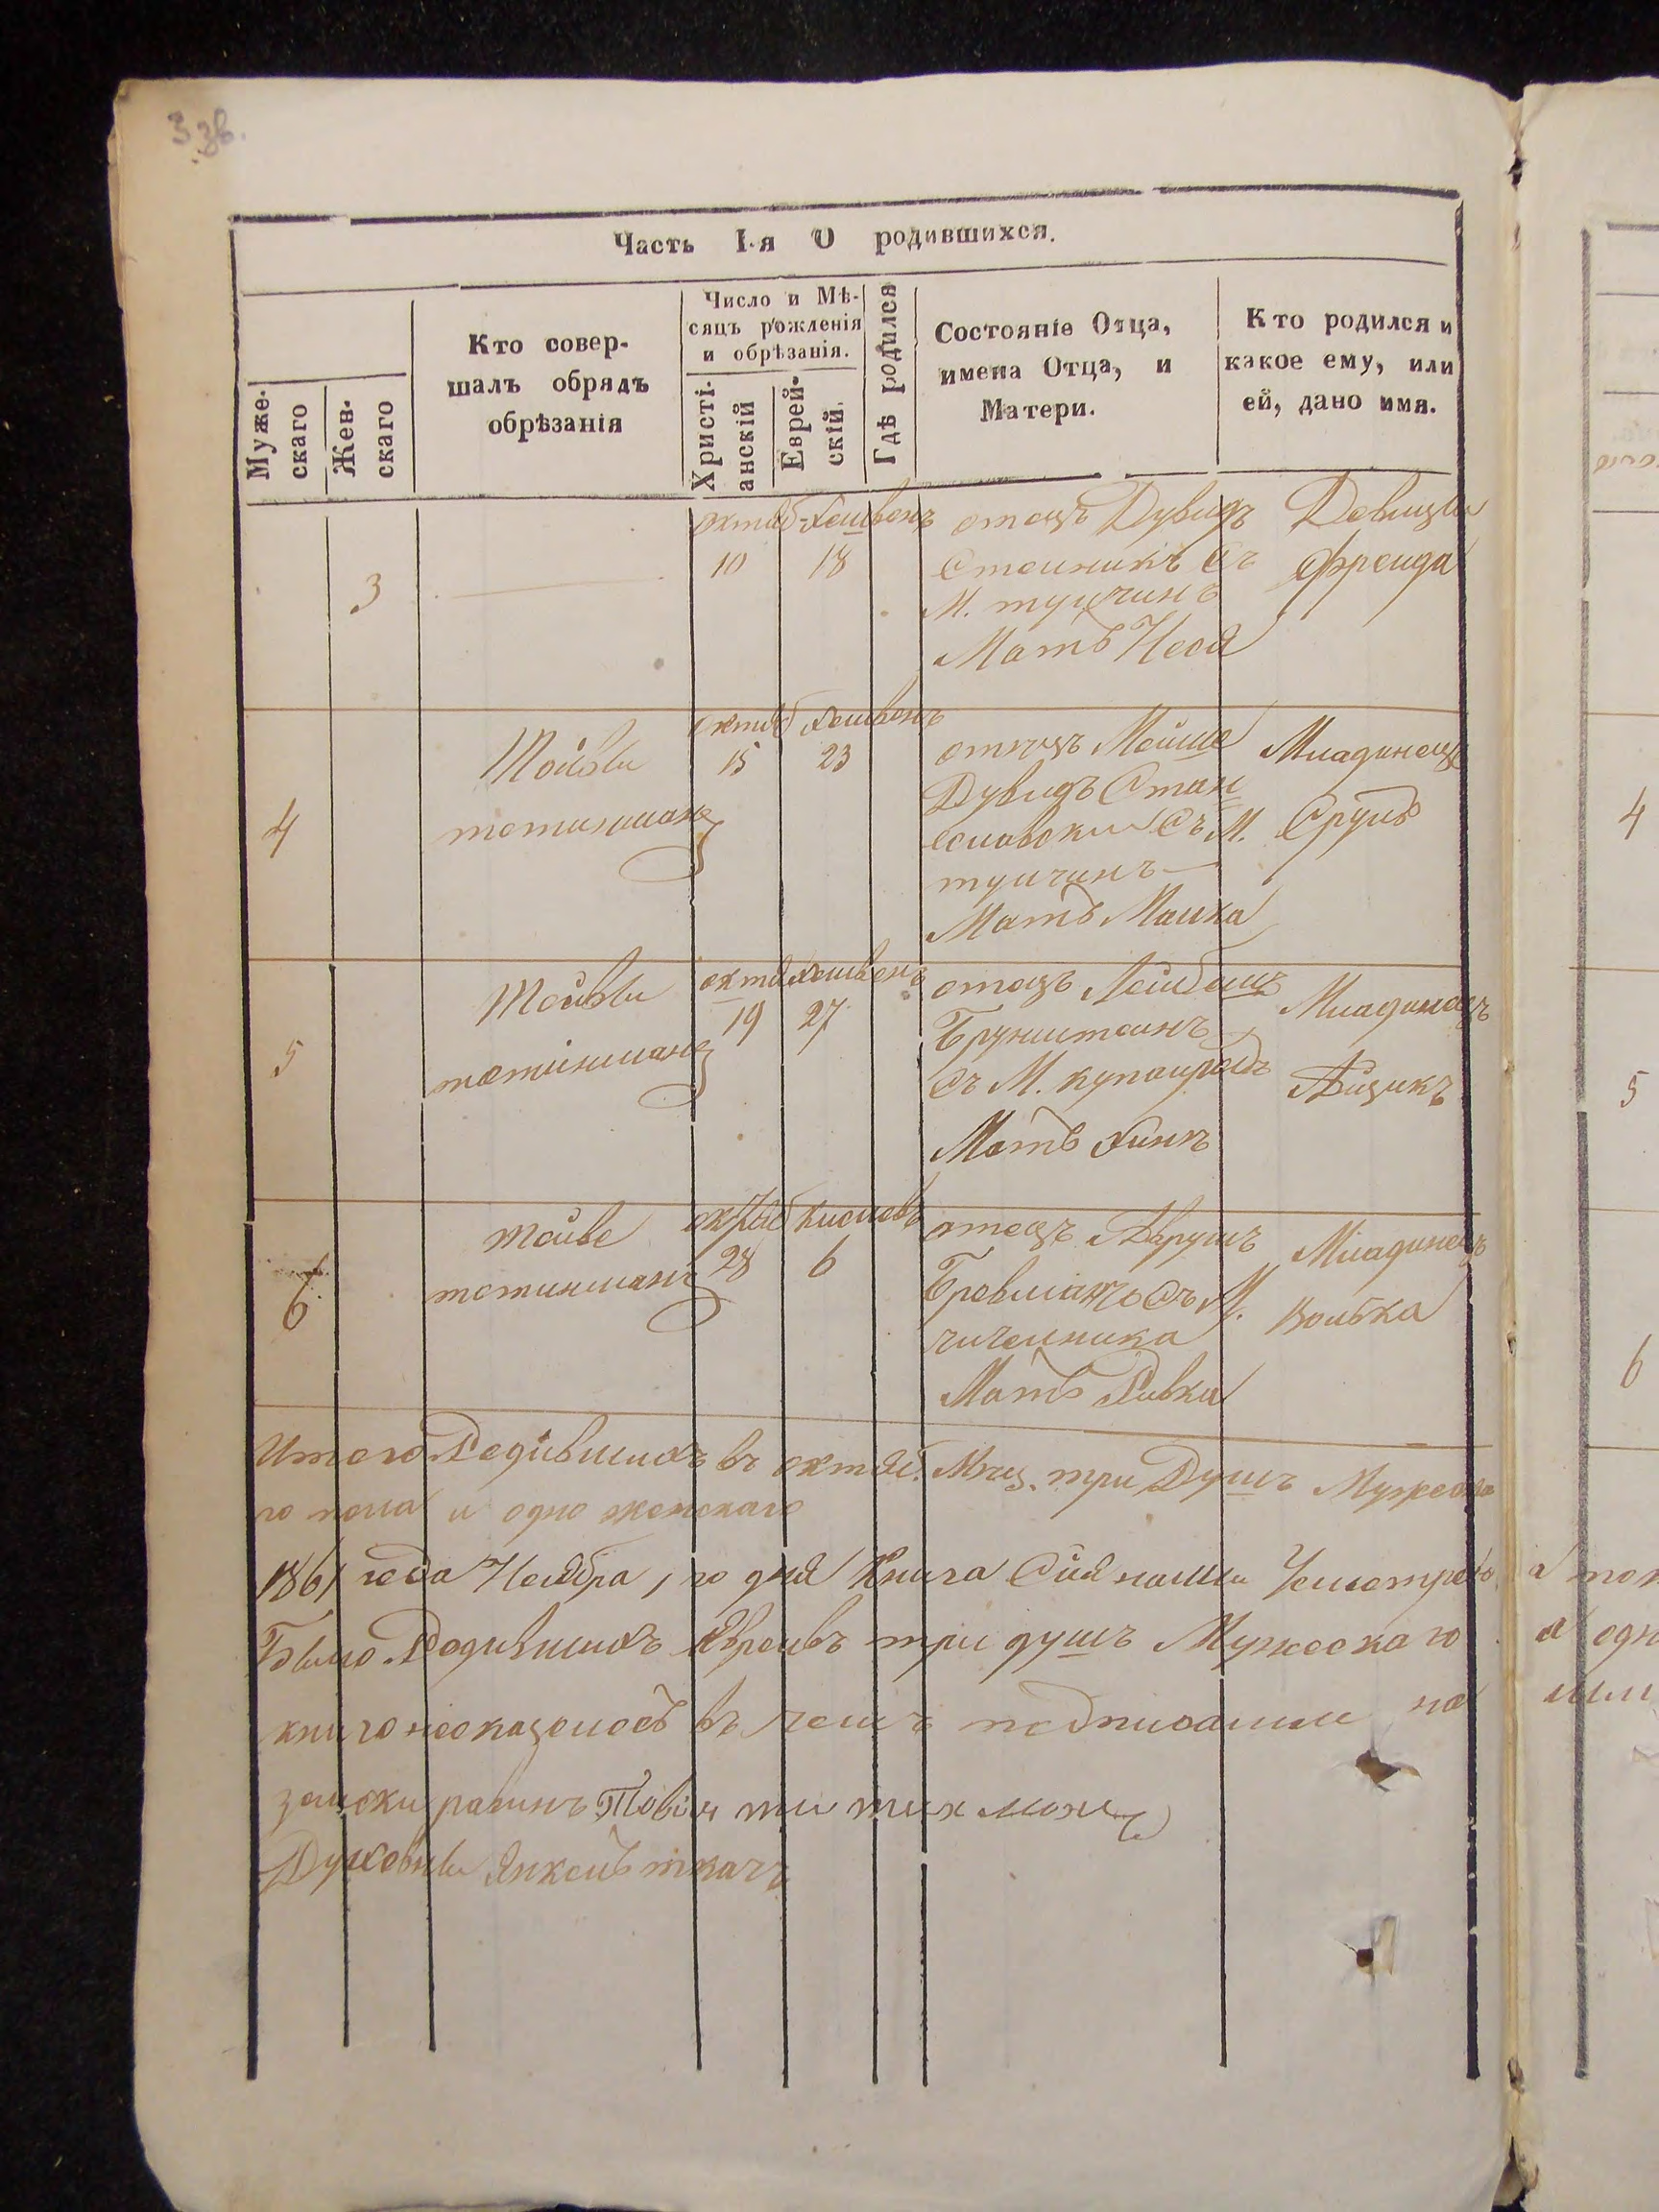 3 зв.
Часть I-я О родившихся.
Муже-
скаго
Жен-
скаго
Кто совер-
шалъ обрядъ
обрѣзанія
Число и Мѣ-
сяцъ рожденія
и обрѣзанія.
Христі-
анскій
Еврей-
скій.
Гдѣ родился
Состояніе Отца,
имена Отца, и
Матери.
Кто родился и
какое ему, или
ей, дано имя.
3
октяб Хешвенъ
10 18
отецъ Дувидъ
Стеиникъ Съ
М. тучинъ
Мать Неся
Девицы
Фреида
4
Тойвы
тотинманъ
октяб Хешвенъ
15 23
отецъ Мойше
Дувидъ Стан
еславски Съ М.
тучинъ
Мать Малка
Младинецъ
Сруль
5
Тойвы
тотинманъ
октяб Хешвенъ
19 27
отецъ Лейбишъ
Бруништеинъ
Съ М. купаиредъ
Мать Хинъ
Младинецъ
Айзикъ
6
Тойве
тотинманъ
октяб Кислевъ
28 6
отецъ Аврумъ
Бревманъ Съ М.
чичелника
Мать Ривка
Младинецъ
Волька
Итого Родившихъ въ октяб. Мѣц. три Душъ Мужеска
го пола и одно женскаго
1861 года Ноября 1 го дня Книга Сия нами
Было Родившихъ Евреивъ три душъ Мужеска го
книго неоказолось въ чемъ подписались
рабинъ Товия титинмонъ
Духовны Янкель ткачъ
4
5
6